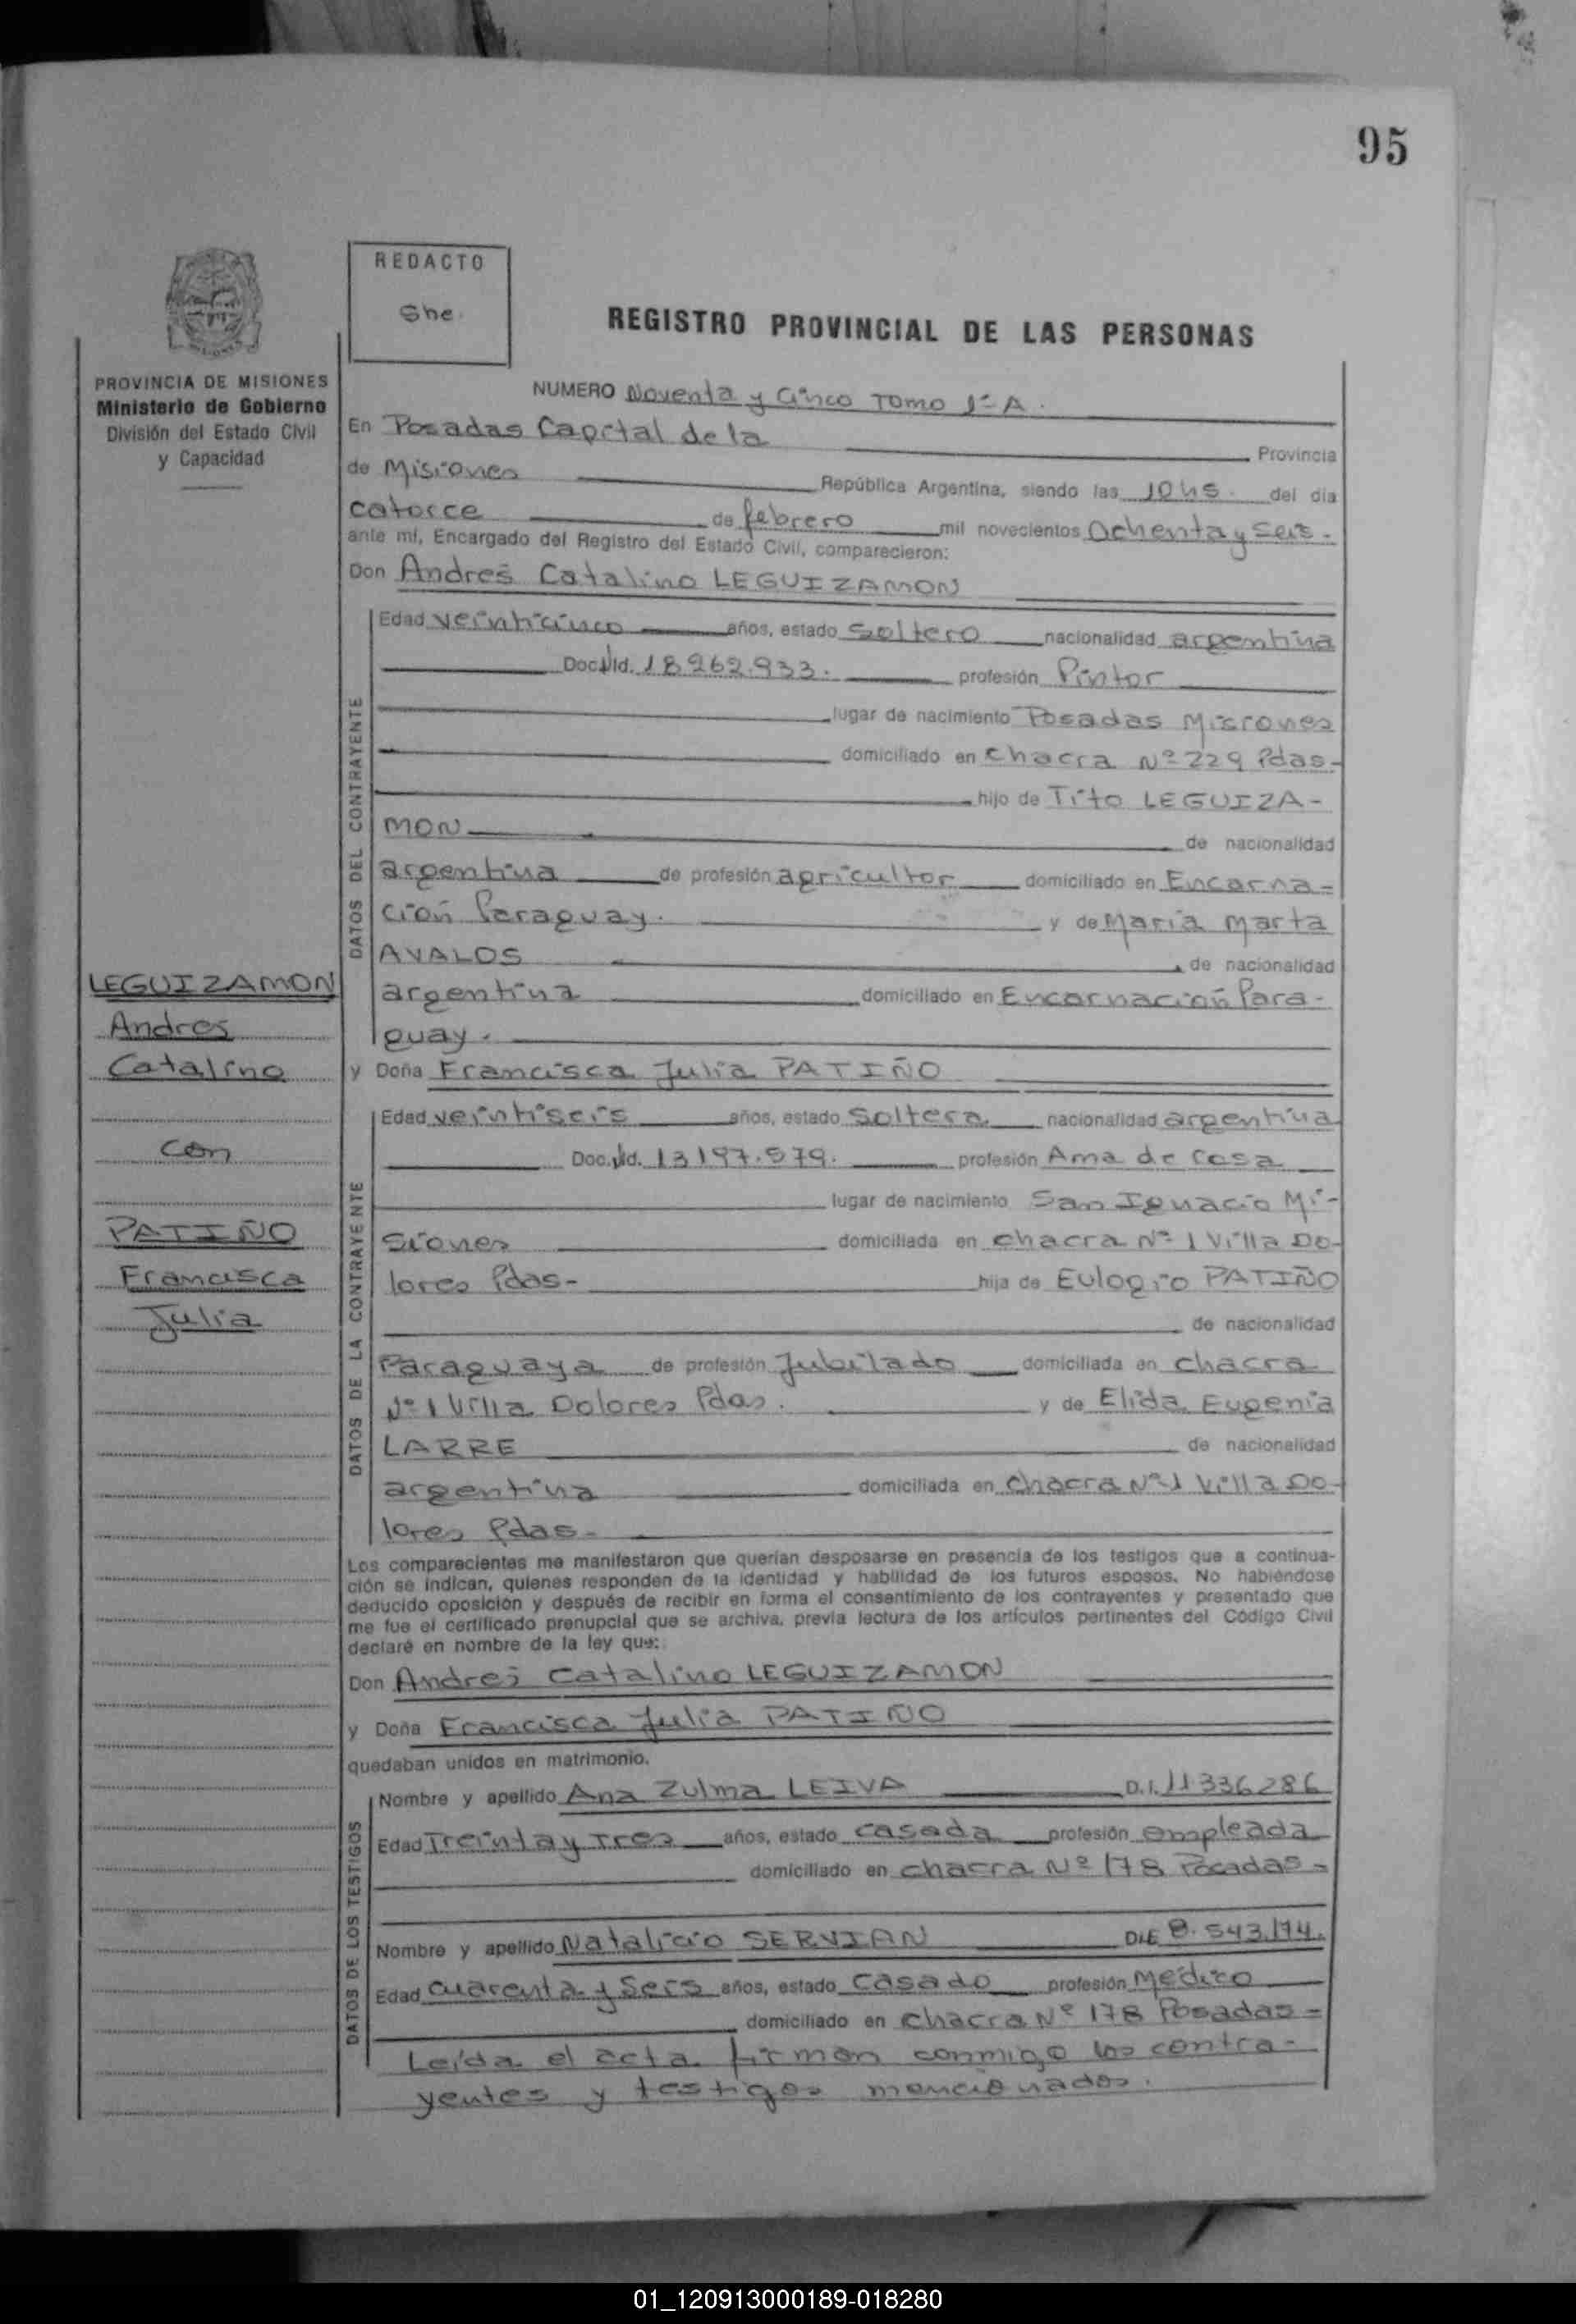 95
REDACTO
She.
REGISTRO PROVINCIAL DE LAS PERSONAS
PROVINCIA DE MISIONES
Ministerio de Gobierno
División del Estado Civil
y Capacidad
NUMERO Noventa y Cinco Tomo 1º A.
En Posadas Capital de la Provincia
de Misiones República Argentina, siendo las 10 hs. del día
catorce de febrero mil novecientos Ochenta y seis.
ante mí, Encargado del Registro del Estado Civil, comparecieron:
Don Andres Catalino LEGUIZAMON
DATOS DEL CONTRAYENTE
Edad veinticinco años, estado Soltero nacionalidad argentina
Doc. Id. 18262.933. profesión Pintor
lugar de nacimiento Posadas Misiones
domiciliado en Chacra Nº 229 Pdas-
hijo de Tito LEGUIZA-
MON de nacionalidad
argentina de profesión agricultor domiciliado en Encarna-
ción Paraguay. y de María Marta
AVALOS de nacionalidad
argentina domiciliado en Encarnación Para-
guay.
LEGUIZAMON
Andres
Catalino
con
PATIÑO
Francisca
Julia
y Doña Francisca Julia PATIÑO
DATOS DE LA CONTRAYENTE
Edad veintiseis años, estado Soltera nacionalidad argentina
Doc. Id. 13197.579. profesión Ama de Casa
lugar de nacimiento San Ignacio Mi-
siones domiciliada en chacra Nº 1 Villa Do-
lores Pdas- hija de Eulogio PATIÑO
de nacionalidad
Paraguaya de profesión Jubilado domiciliada en chacra
Nº 1 Villa Dolores Pdas. y de Elida Eugenia
LARRE de nacionalidad
argentina domiciliada en chacra Nº 1 Villa Do-
lores Pdas-
Los comparecientes me manifestaron que querían desposarse en presencia de los testigos que a continua-
ción se indican, quienes responden de la identidad y habilidad de los futuros esposos. No habiéndose
deducido oposición y después de recibir en forma el consentimiento de los contrayentes y presentado que
me fue el certificado prenupcial que se archiva, previa lectura de los artículos pertinentes del Código Civil
declaré en nombre de la ley que:
Don Andres Catalino LEGUIZAMON
y Doña Francisca Julia PATIÑO
quedaban unidos en matrimonio.
DATOS DE LOS TESTIGOS
Nombre y apellido Ana Zulma LEIVA D.I. 11336286
Edad Treinta y Tres años, estado casada profesión empleada
domiciliado en chacra Nº 178 Posadas-
Nombre y apellido Natalicio SERVIAN DIE 8.543.174.
Edad cuarenta y seis años, estado casado profesión Médico
domiciliado en chacra Nº 178 Posadas-
Leída el acta firman conmigo los contra-
yentes y testigos mencionados.
01_120913000189-018280